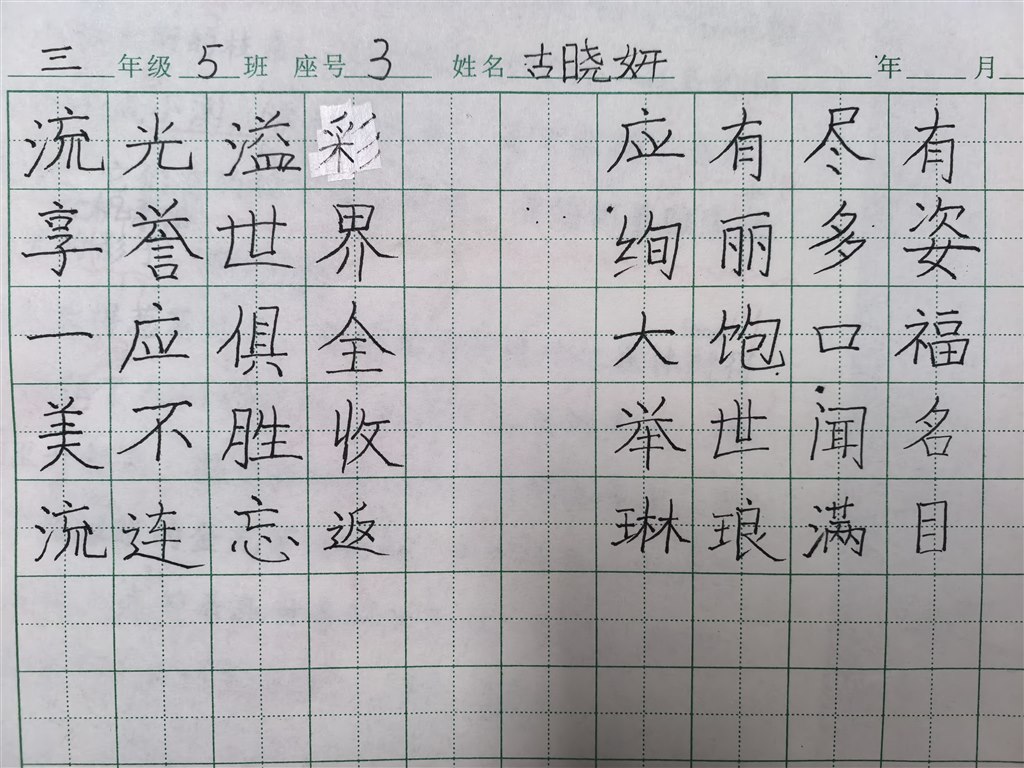 三年级 5班 座号 3 姓名 古晓妍 年 月
流光溢彩 应有尽有
享誉世界 绚丽多姿
一应俱全 大饱口福
美不胜收 举世闻名
流连忘返 琳琅满目